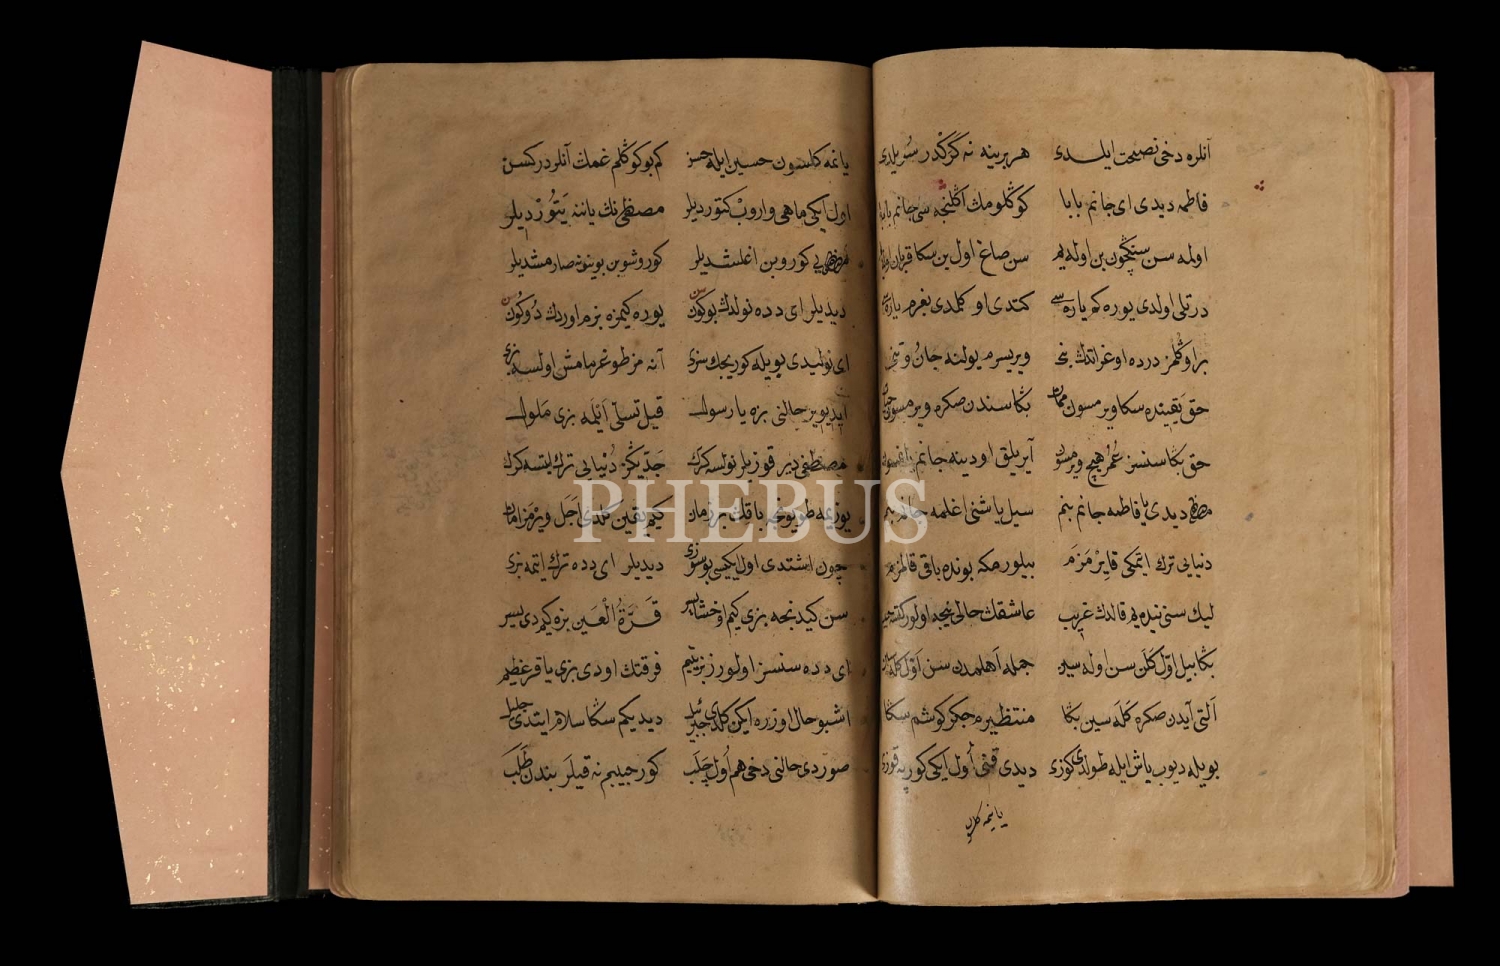 آنلره دخی نصیحت ایلدی هر برینه نه گرکدر سویلدی
فاطمه دیدی ای جانم بابا کوکلومك اکلنجه سی جانم بابا
اوله سن سنکچون بن اوله یم سن صاغ اول بن سکا قربان
درتلی اولدی یوره که یاره سی کتدی او کلدی بغرم یاره سی
درده اوغراتدك بنی ویریسرم یولنه جان و تنی
حق یقینده سکا ویرمسون ممات بکا سندن صکره ویرمسون حیات
حق بکا سنسز عمر هیچ ویرمسون آیریلق اودینه جانم
مصطفی دیدی یا فاطمه جانم بنم سیل یاشنی اغلمه
دنیایی ترك ایتمکی قایرمزم بیلورمکه بونده باقی قالمزم
لیك سنی نیده یم قالدك غریب عاشقك حالی نیجه اولور
بکا بیل اول کلن سن اوله سین جمله اهلمدن سن اول
التی آیدن صکره کله سین بکا منتظرم جکر کوشم سکا
بویله دیوب یاش ایله طولدی کوزی دیدی قنی اول ایکی کورپه قوزی
یانمه کلسون
یانمه کلسون حسین ایله حسن کم بو کوکلم غمك آنلردر کسن
اول ایکی ماهی واروب کتوردیلر مصطفی نك یاننه یتوردیلر
کوروبن اغلشدیلر کوروشوبن بوینونه صارمشدیلر
دیدیلر ای دده نولدك بوکون یوره کیمزه بزم اوردك دوکون
ای نولیدی بویله کوریجك سزی آنه مز طوغرمامش اولسه بزی
حالنی بزه یا رسول قیل تسلی ایلمه بزی ملول
مصطفی دیر قوزیلر نولسه کرك جدیکز دنیایی ترك ایتسه کرك
کیم یقین کلدی اجل ویرمز امان
چون اشتدی اول ایکیسی بو سوزی دیدیلر ای دده ترك ایتمه بزی
سن کیدنجه بزی کیم اوخشایسر قرة العین بزه کیم دیسر
ای دده سنسز اولورز بز یتیم فرقتك اودی بزی یاقر عظیم
اشبو حال اوزره ایکن کلدی جبرئیل دیدیکم سکا سلام ایتدی جلیل
صوردی حالنی دخی هم اول چلب کور حبیبم نه قیلر بندن طلب
PHEBUS